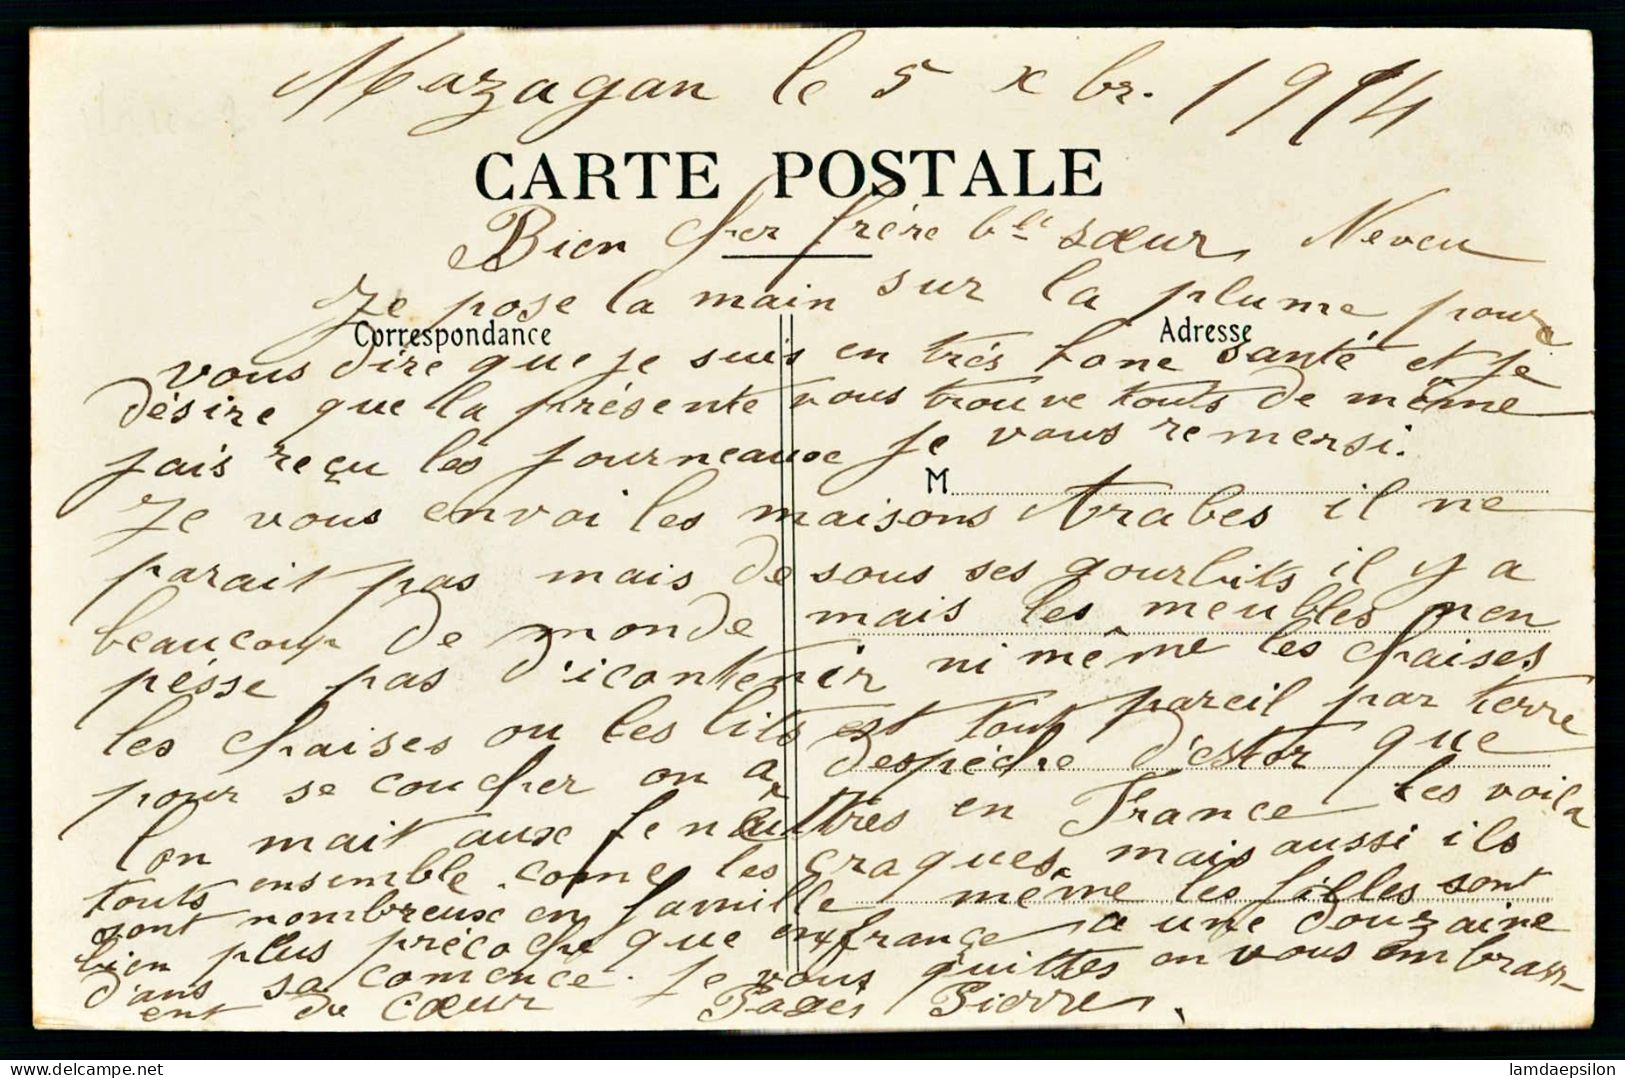 Mazagan le 5 xbr. 1914
CARTE POSTALE
Bien cher frère blle sœur, Neveu
Je pose la main sur la plume pour
Correspondance
Adresse
vous dire que je suis en très bone santé et je
désire que la présente vous trouve touts de même
jais reçu les journeaux je vous remersi.
M
Je vous envoi les maisons Arabes il ne
parait pas mais desous ses gourbits il y a
beaucoup de monde mais les meubles nen
pésse pas d'icontenir ni même les chaises
les chaises ou les lits est tout pareil par terre
pour se coucher on a despèche d'estor que
lon mait aux fenêttres en France les voila
touts ensemble come les craques mais aussi ils
sont nombreux en famille même les filles sont
bien plus précoche que en france a une douzaine
d'ans sa comence. Je vous quittes en vous embrass-
ent du cœur Pages Pierre.
lamdaepsilon